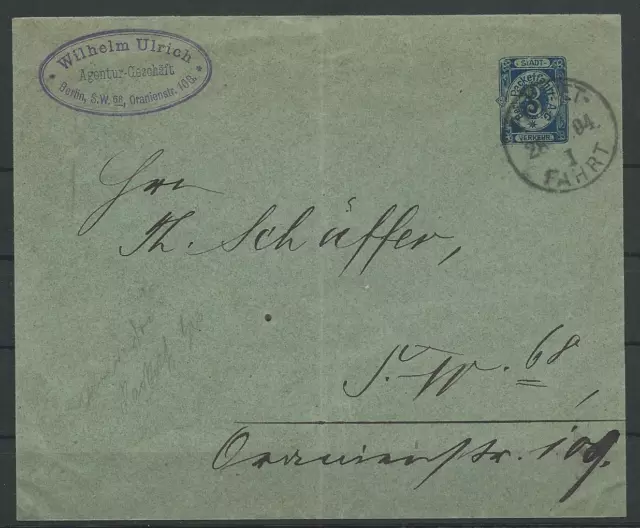 Wilhelm Ulrich
Agentur-Geschäft
Berlin, S.W. 68, Oranienstr. 109.
STADT-
Packetfahrt-
3
VERKEHR
84
I
FAHRT
Hrn
Th. Schäffer,
S. W. 68,
Oranienstr. 109.